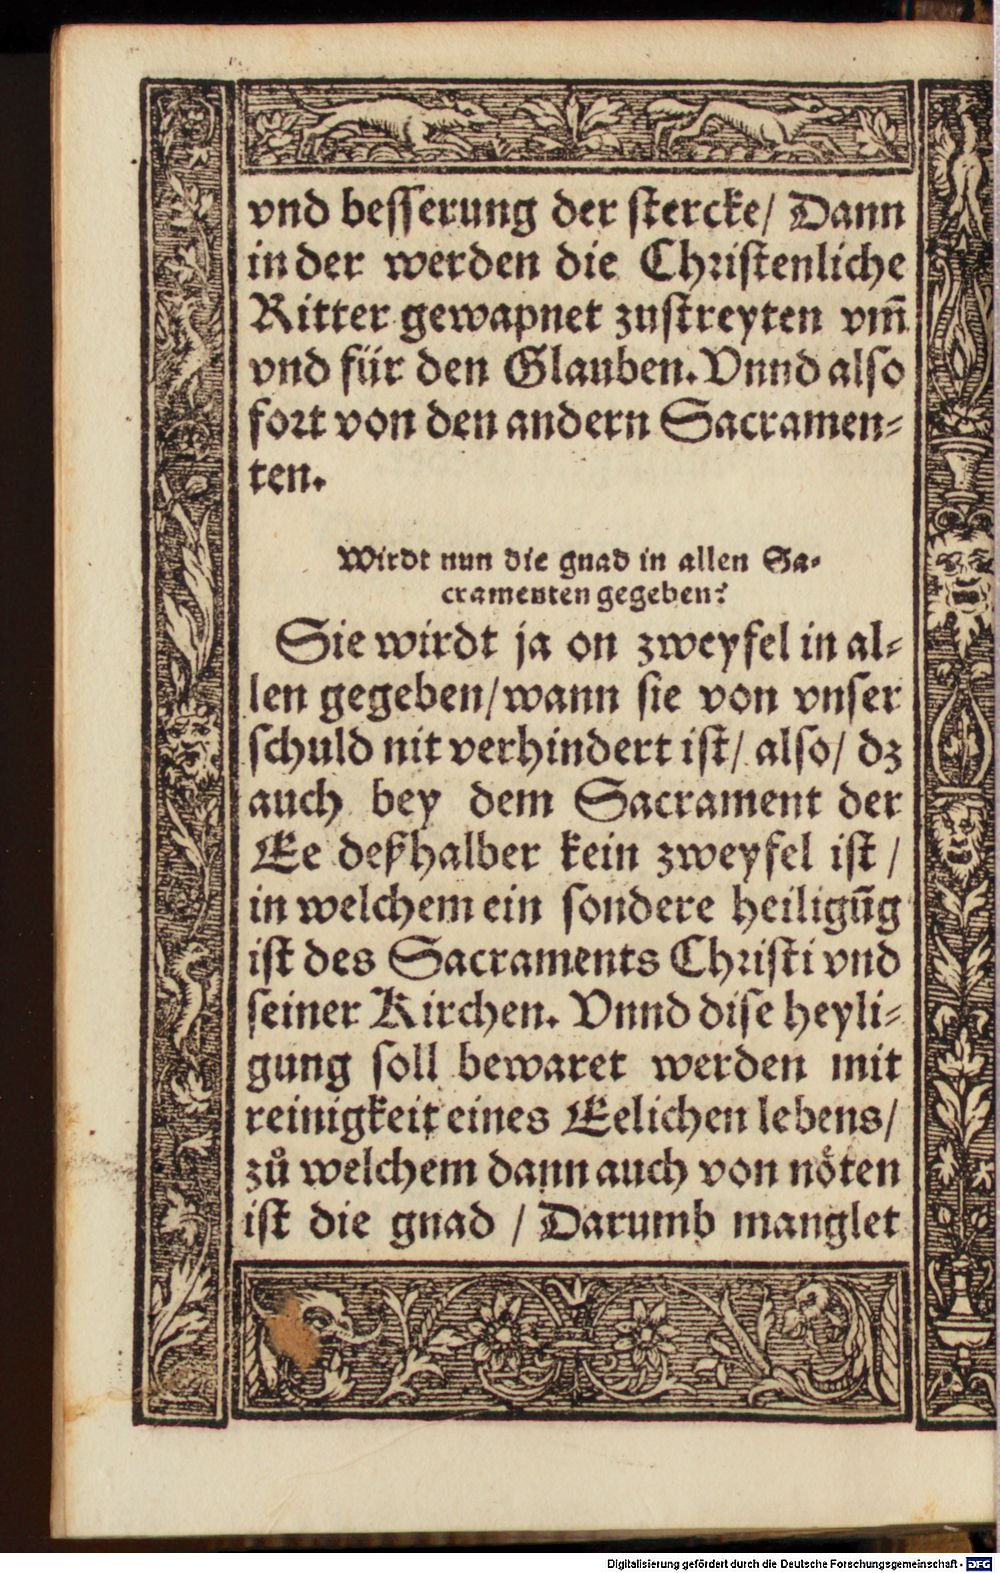 vnd besserung der stercke/ Dann
in der werden die Christenliche
Ritter gewapnet zustreyten vm̄
vnd für den Glauben. Vnnd also
fort von den andern Sacramen⸗
ten.
Wirdt nun die gnad in allen Sa⸗
cramenten gegeben?
Sie wirdt ja on zweyfel in al⸗
len gegeben/ wann sie von vnser
schuld nit verhindert ist/ also/ dz
auch bey dem Sacrament der
Ee deßhalber kein zweyfel ist /
in welchem ein sondere heiligūg
ist des Sacraments Christi vnd
seiner Kirchen. Vnnd dise heyli⸗
gung soll bewaret werden mit
reinigkeit eines Eelichen lebens/
zů welchem dann auch von nöten
ist die gnad / Darumb manglet
Digitalisierung gefördert durch die Deutsche Forschungsgemeinschaft - DFG